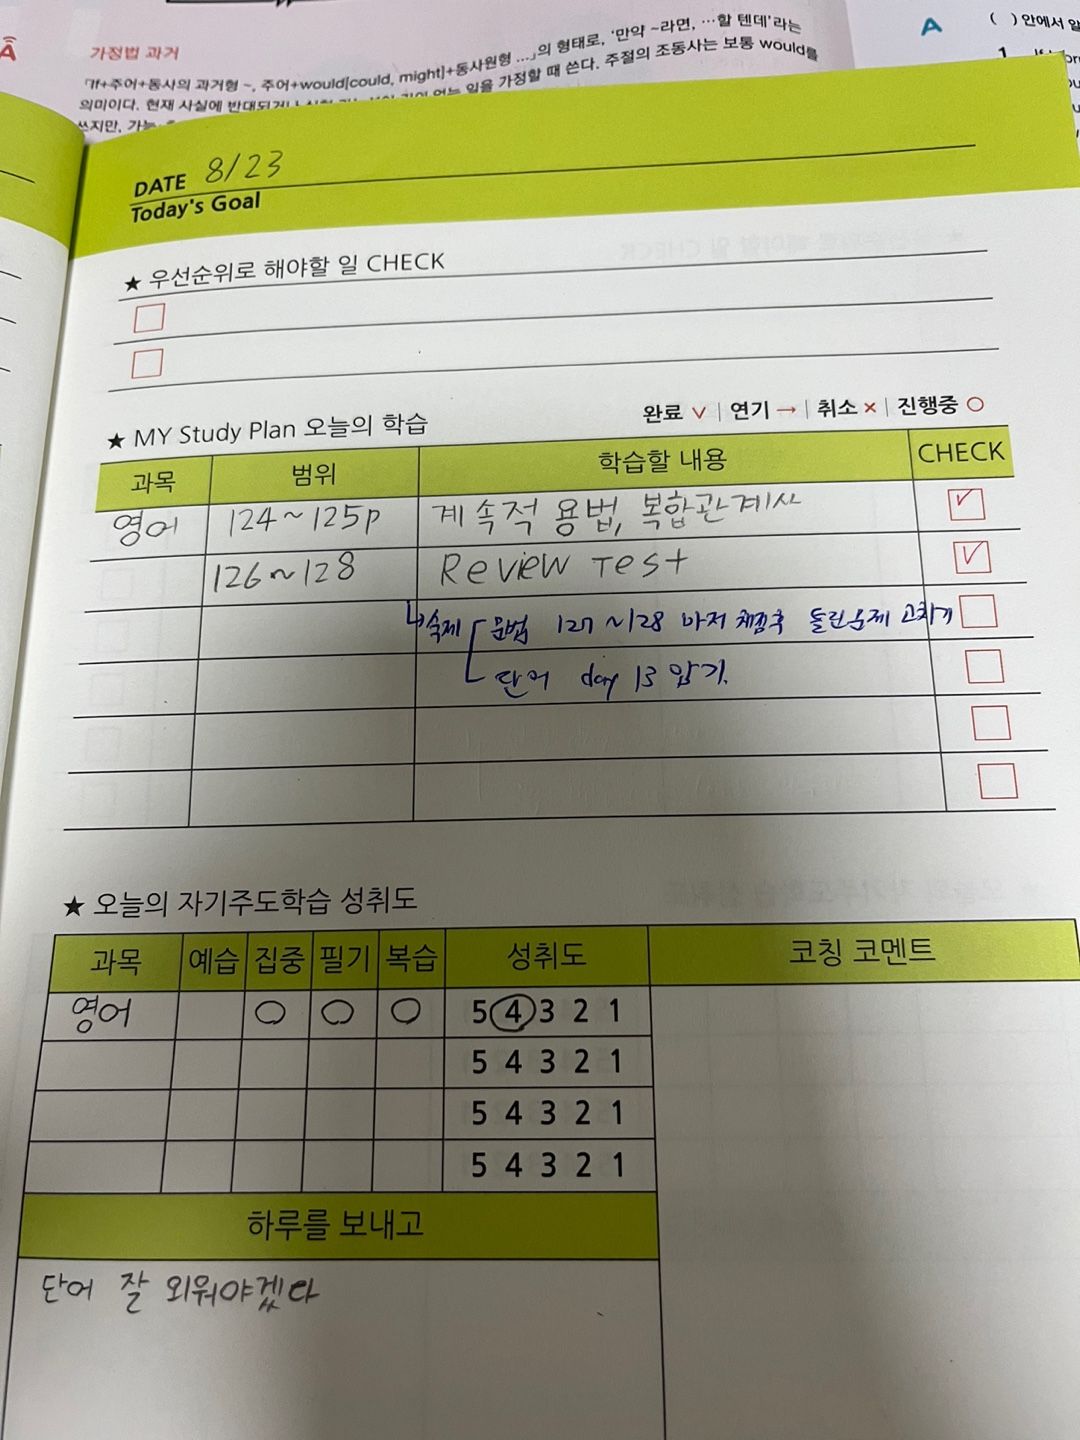 가정법 과거
「If+주어+동사의 과거형 ~, 주어+would[could, might]+동사원형 ...」의 형태로, '만약 ~라면, …할 텐데'라는
의미이다. 현재 사실에 반대되거나 일을 가정할 때 쓴다. 주절의 조동사는 보통 would를
쓰지만, 가능
A
( ) 안에서 알
1
DATE 8/23
Today's Goal
★ 우선순위로 해야할 일 CHECK
★ MY Study Plan 오늘의 학습
완료 ∨ | 연기 → | 취소 × | 진행중 ○
과목 범위 학습할 내용 CHECK
영어 124~125p 계속적 용법, 복합관계사 ✓
126~128 Review Test ✓
↳숙제 문법 127~128 마저 채점후 틀린문제 고치기
단어 day 13 암기.
★ 오늘의 자기주도학습 성취도
과목 예습 집중 필기 복습 성취도 코칭 코멘트
영어 ○ ○ ○ 5 4 3 2 1
5 4 3 2 1
5 4 3 2 1
5 4 3 2 1
하루를 보내고
단어 잘 외워야겠다